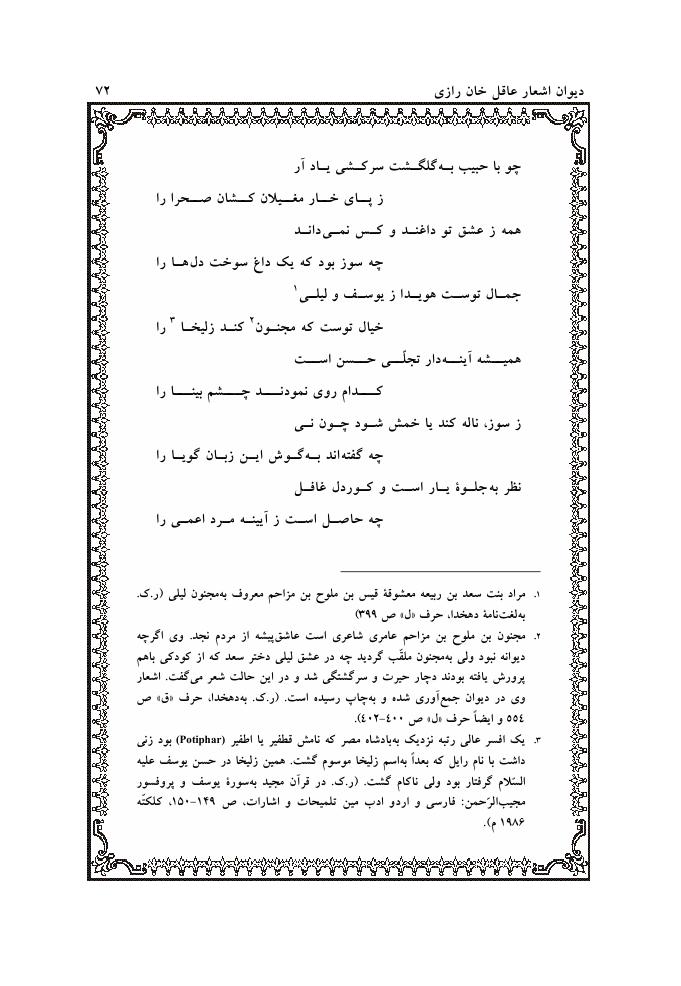 دیوان اشعار عاقل خان رازی ۷۲
چو با حبیب به‌گلگشت سرکشی یاد آر
ز پای خار مغیلان کشان صحرا را
همه ز عشق تو داغند و کس نمی‌داند
چه سوز بود که یک داغ سوخت دل‌ها را
جمال توست هویدا ز یوسف و لیلی۱
خیال توست که مجنون۲ کند زلیخا۳ را
همیشه آینه‌دار تجلّی حسن است
کدام روی نمودند چشم بینا را
ز سوز، ناله کند یا خمش شود چون نی
چه گفته‌اند به‌گوش این زبان گویا را
نظر به‌جلوهٔ یار است و کوردل غافل
چه حاصل است ز آیینه مرد اعمی را
۱. مراد بنت سعد بن ربیعه معشوقهٔ قیس بن ملوح بن مزاحم معروف به‌مجنون لیلی (ر.ک.
به‌لغت‌نامهٔ دهخدا، حرف «ل» ص ۳۹۹)
۲. مجنون بن ملوح بن مزاحم عامری شاعری است عاشق‌پیشه از مردم نجد. وی اگرچه
دیوانه نبود ولی به‌مجنون ملقّب گردید چه در عشق لیلی دختر سعد که از کودکی باهم
پرورش یافته بودند دچار حیرت و سرگشتگی شد و در این حالت شعر می‌گفت. اشعار
وی در دیوان جمع‌آوری شده و به‌چاپ رسیده است. (ر.ک. به‌دهخدا، حرف «ق» ص
۵۵۴ و ایضاً حرف «ل» ص ۴۰۰-۴۰۲).
۳. یک افسر عالی رتبه نزدیک به‌بادشاه مصر که نامش قطفیر یا اطفیر (Potiphar) بود زنی
داشت با نام رایل که بعداً به‌اسم زلیخا موسوم گشت. همین زلیخا در حسن یوسف علیه
السّلام گرفتار بود ولی ناکام گشت. (ر.ک. در قرآن مجید به‌سورهٔ یوسف و پروفسور
مجیب‌الرّحمن: فارسی و اردو ادب مین تلمیحات و اشارات، ص ۱۴۹-۱۵۰، کلکتّه
۱۹۸۶ م).